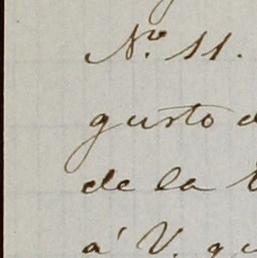 Nº 11.
gusto
de la
á V. qu